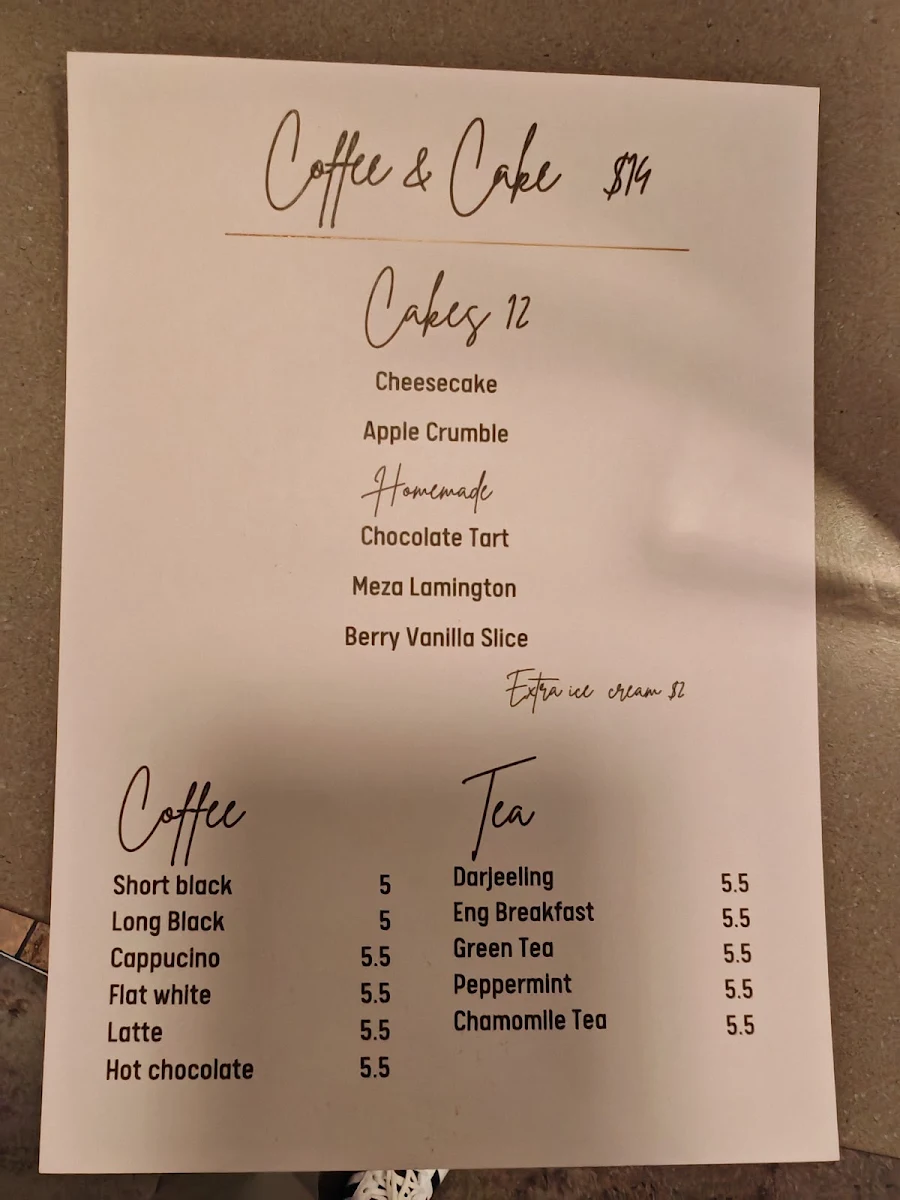 Coffee & Cake $14
Cakes 12
Cheesecake
Apple Crumble
Homemade
Chocolate Tart
Meza Lamington
Berry Vanilla Slice
Extra ice cream $2
Coffee
Short black 5
Long Black 5
Cappucino 5.5
Flat white 5.5
Latte 5.5
Hot chocolate 5.5
Tea
Darjeeling 5.5
Eng Breakfast 5.5
Green Tea 5.5
Peppermint 5.5
Chamomile Tea 5.5